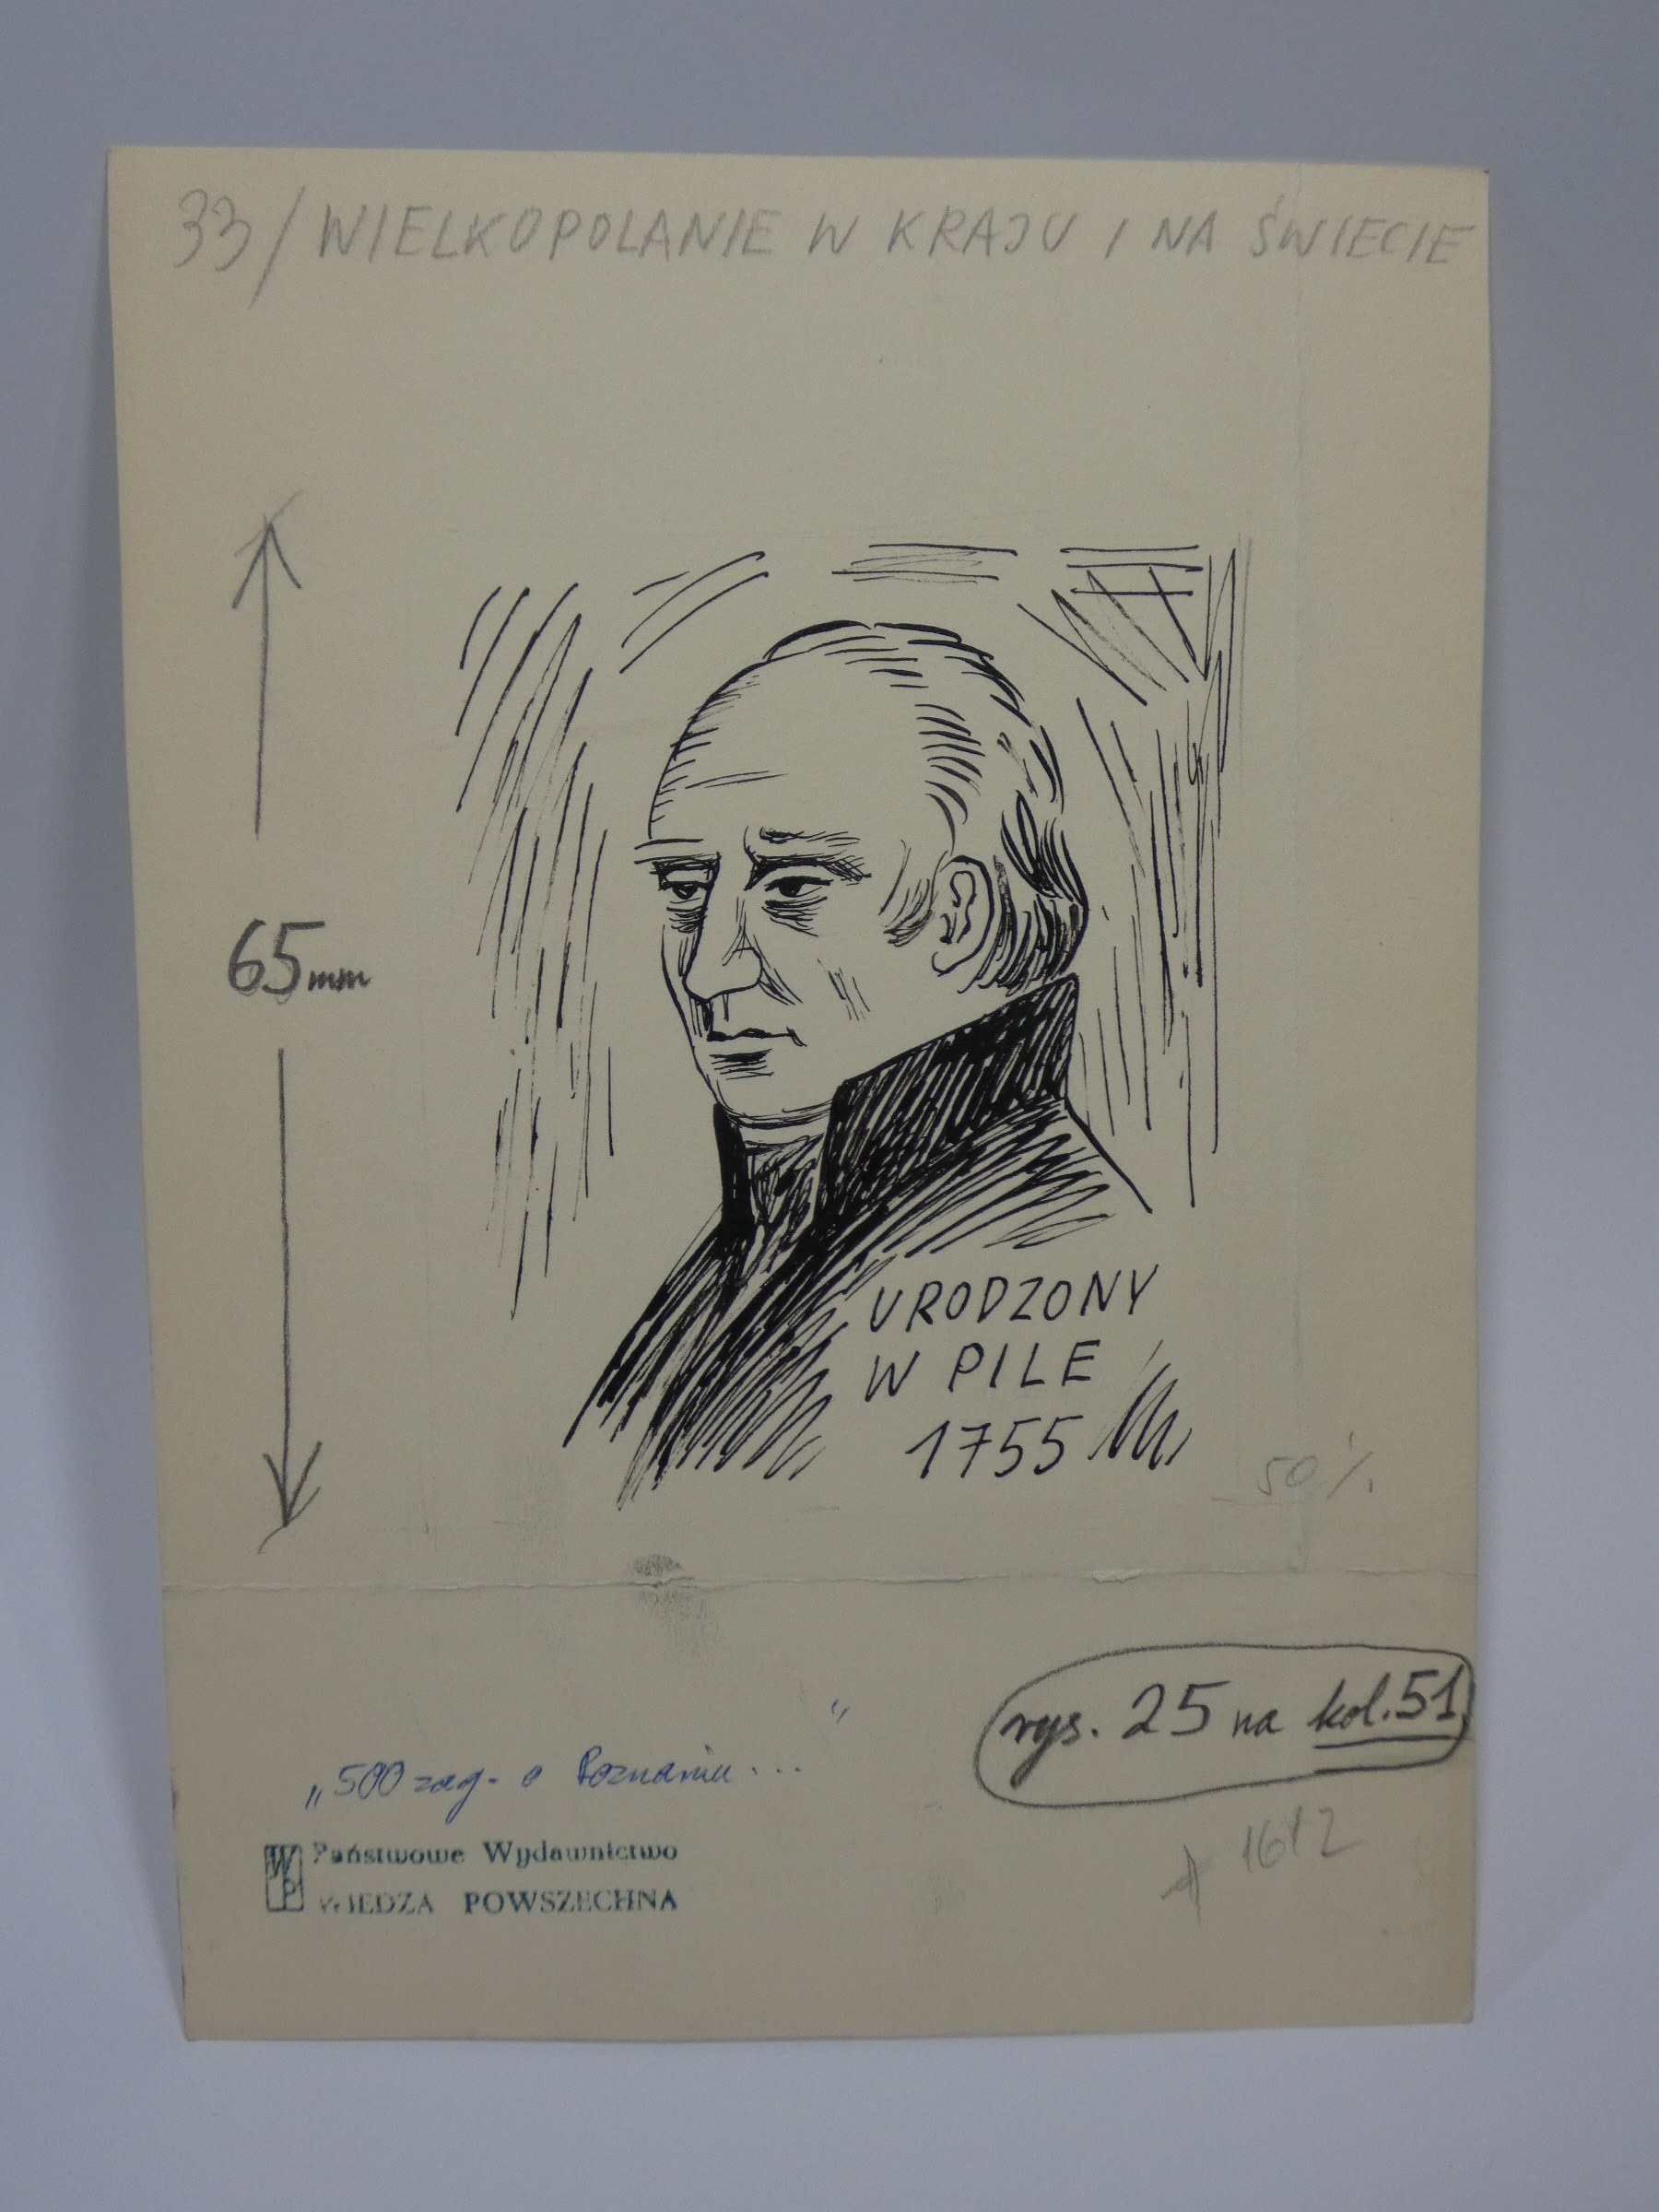 33/ WIELKOPOLANIE W KRAJU I NA ŚWIECIE
65mm
URODZONY
W PILE
1755
50%
rys. 25 na kol. 51
„500 zag. o Poznaniu..."
1612
WP Państwowe Wydawnictwo
WIEDZA POWSZECHNA